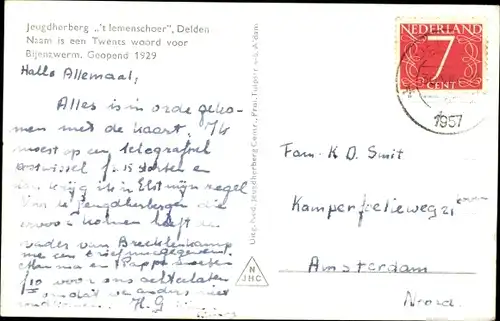 Jeugdherberg „'t Iemenschoer", Delden
Naam is een Twents woord voor
Bijenzwerm. Geopend 1929
Hallo Allemaal,
Alles is in orde geko-
men met de kaart. Ik
moest op een telegrafisch
postwissel f 15 storten en
dan krijg ik in Elst mijn regel
van de Jeugdherbergen die
vader van Brecklenkamp
me een briefje meegegeven
f10 voor ons achterlaten
omdat we anders niet
H.G
Uitg. Ned. Jeugdherberg Centr., Prof. Tulpstr. 2, A'dam
N
JHC
NEDERLAND
7
CENT
1957
Fam. K D. Smit
Kamperfoelieweg 21
Amsterdam
Noord.